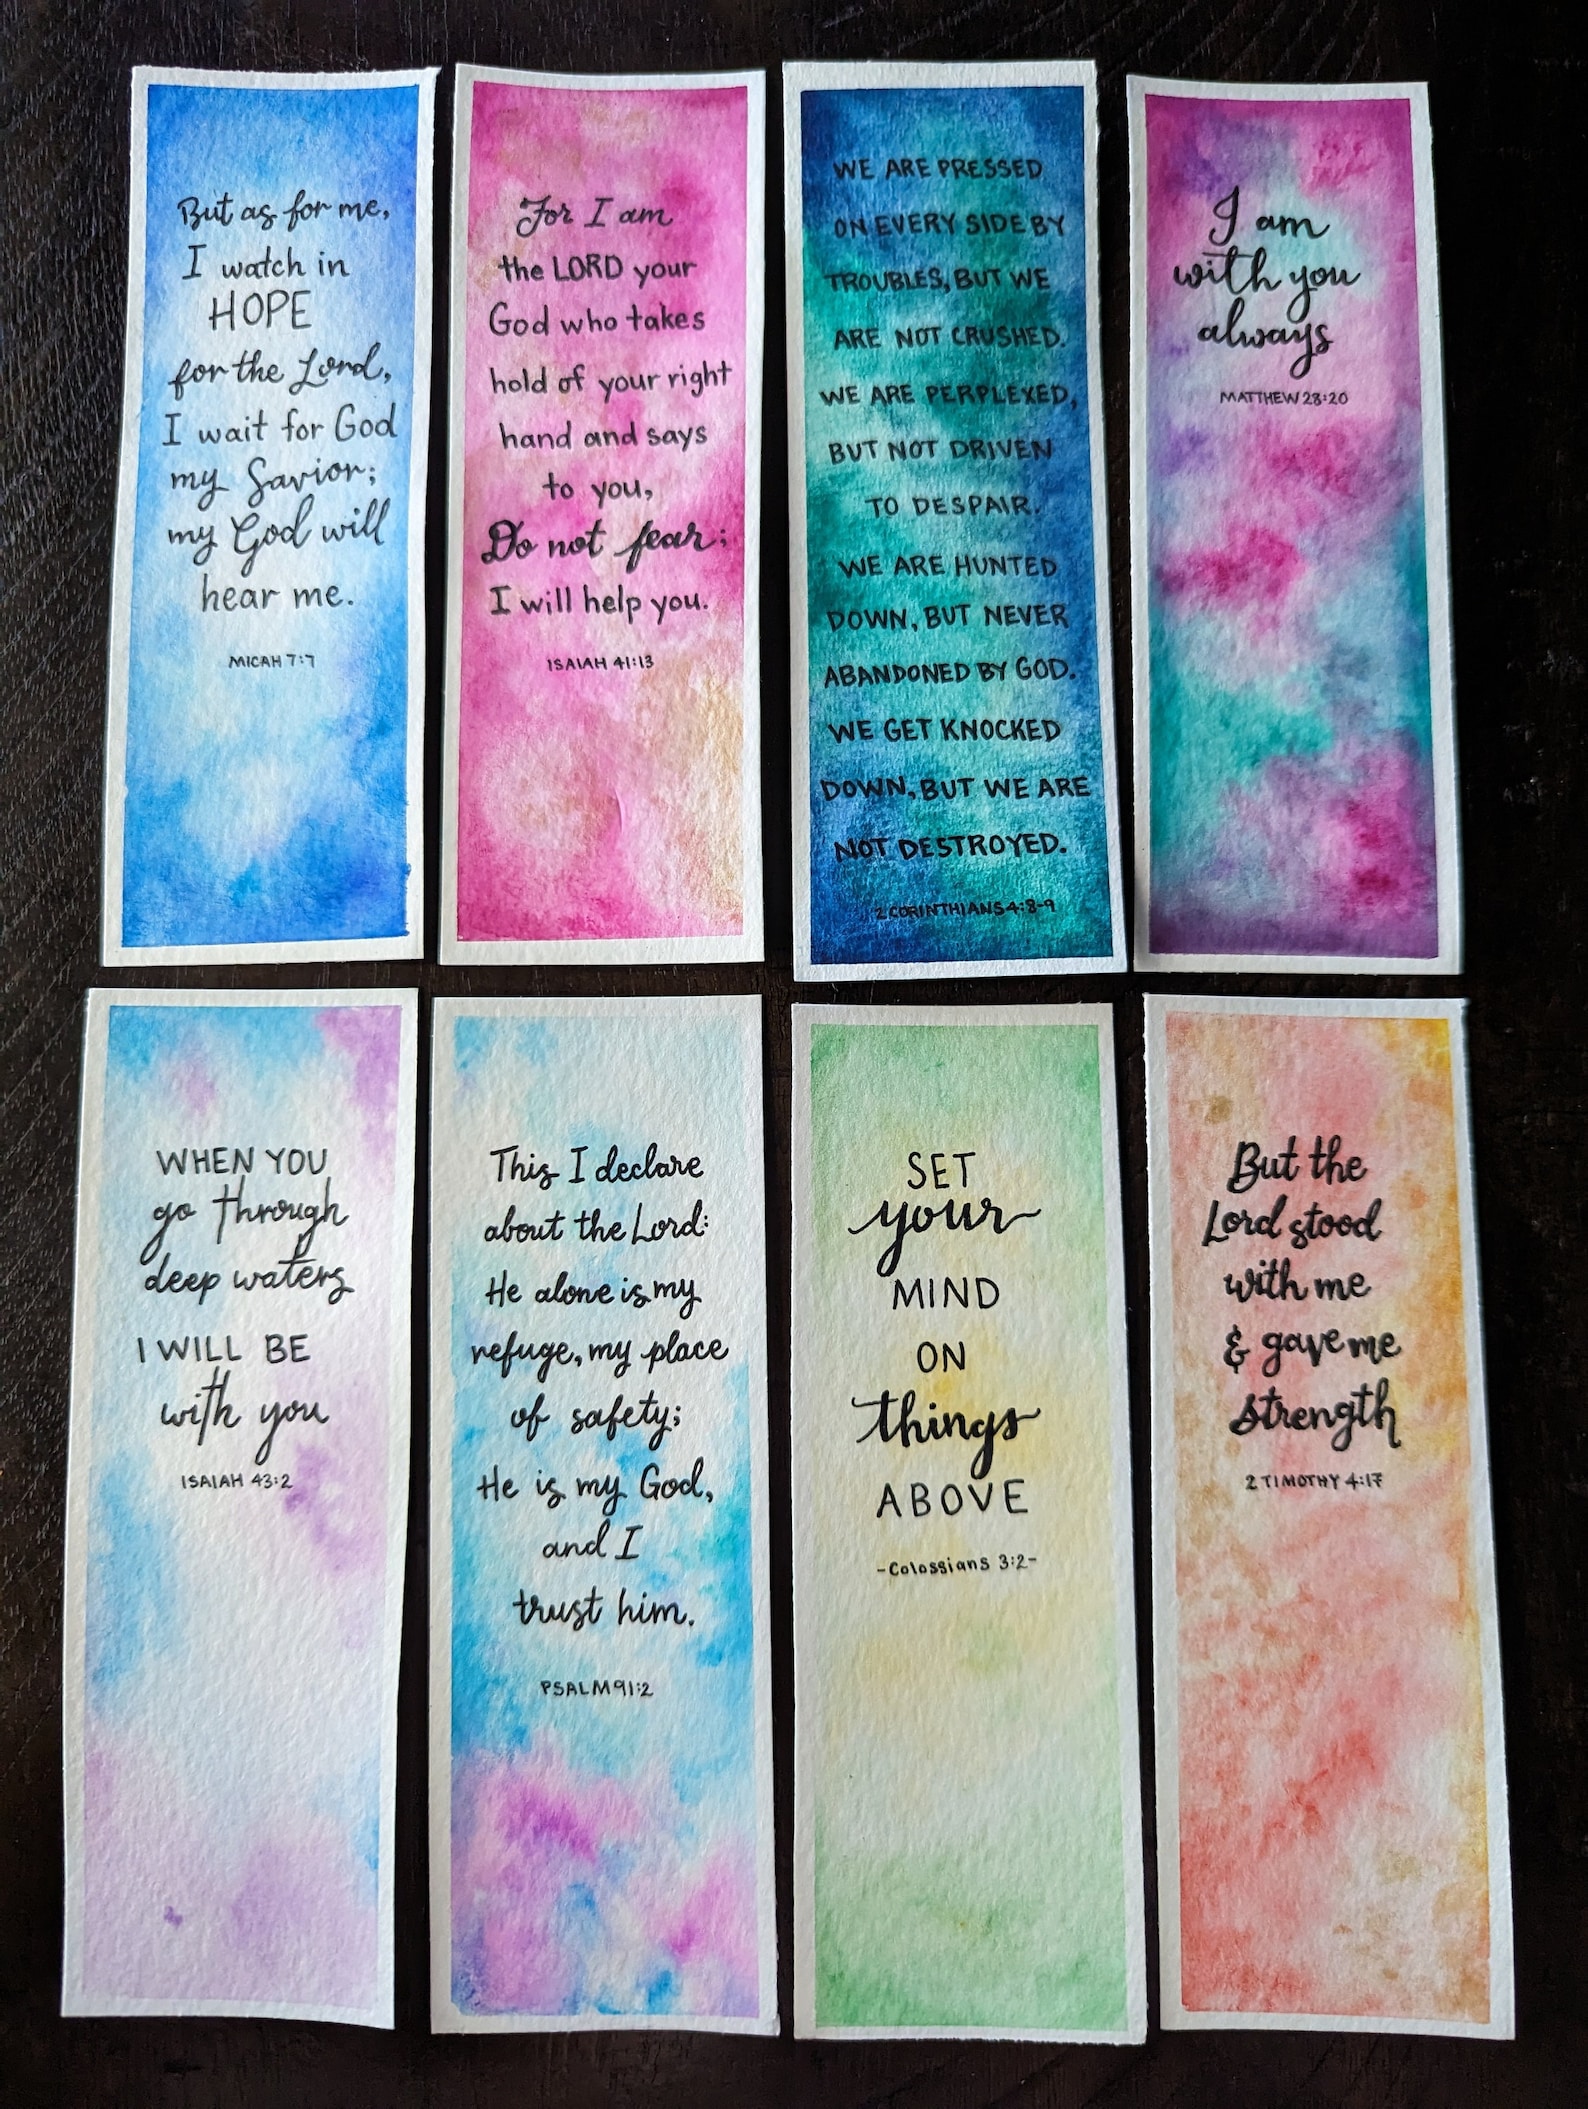 But as for me,
I watch in
HOPE
for the Lord,
I wait for God
my Savior;
my God will
hear me.
MICAH 7:7
For I am
the LORD your
God who takes
hold of your right
hand and says
to you,
Do not fear;
I will help you.
ISAIAH 41:13
WE ARE PRESSED
ON EVERY SIDE BY
TROUBLES, BUT WE
ARE NOT CRUSHED.
WE ARE PERPLEXED,
BUT NOT DRIVEN
TO DESPAIR.
WE ARE HUNTED
DOWN, BUT NEVER
ABANDONED BY GOD.
WE GET KNOCKED
DOWN, BUT WE ARE
NOT DESTROYED.
2 CORINTHIANS 4:8-9
I am
with you
always
MATTHEW 28:20
WHEN YOU
go through
deep waters
I WILL BE
with you
ISAIAH 43:2
This I declare
about the Lord:
He alone is my
refuge, my place
of safety;
He is my God,
and I
trust him.
PSALM 91:2
SET
your
MIND
ON
things
ABOVE
-Colossians 3:2-
But the
Lord stood
with me
& gave me
strength
2 TIMOTHY 4:17